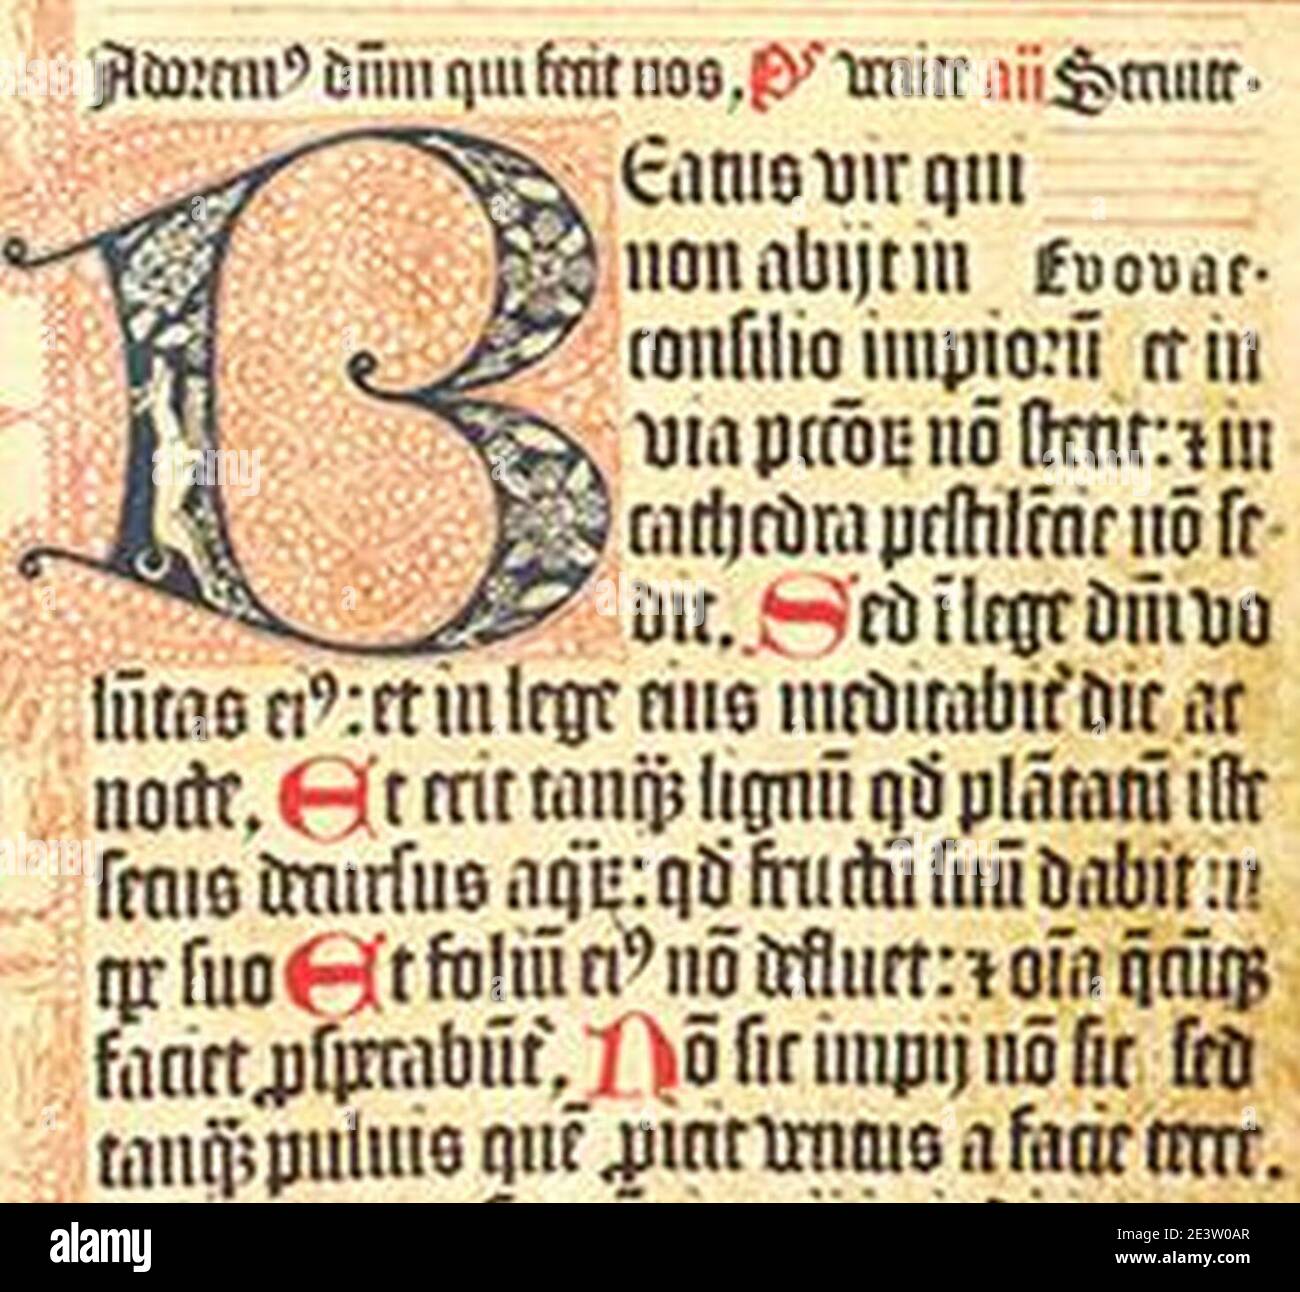 Adorem⁹ dn̄m qui fecit nos, Ps venite aii Seruite.
BEatus vir qui
non abijt in Evovae.
consilio impiorū et in
via pctōꝝ nō stetit: ⁊ in
cathedra pestilēcie nō se-
dit. Sed ī lege dn̄i vo
lūtas ei⁹: et in lege eius meditabit᷑ die ac
nocte, Et erit tanq̄ꝫ lignū qd̄ plātatū iste
secus decursus aqꝝ: qd̄ fructū suū dabit in
tpe suo Et foliū ei⁹ nō defluet: ⁊ oīa q̄cūqꝫ
faciet ꝓsperabūt᷑, Nō sic impij nō sic sed
tanq̄ꝫ puluis quē ꝓicit ventus a facie terre.
alamy
Image ID: 2E3W0AR
www.alamy.com